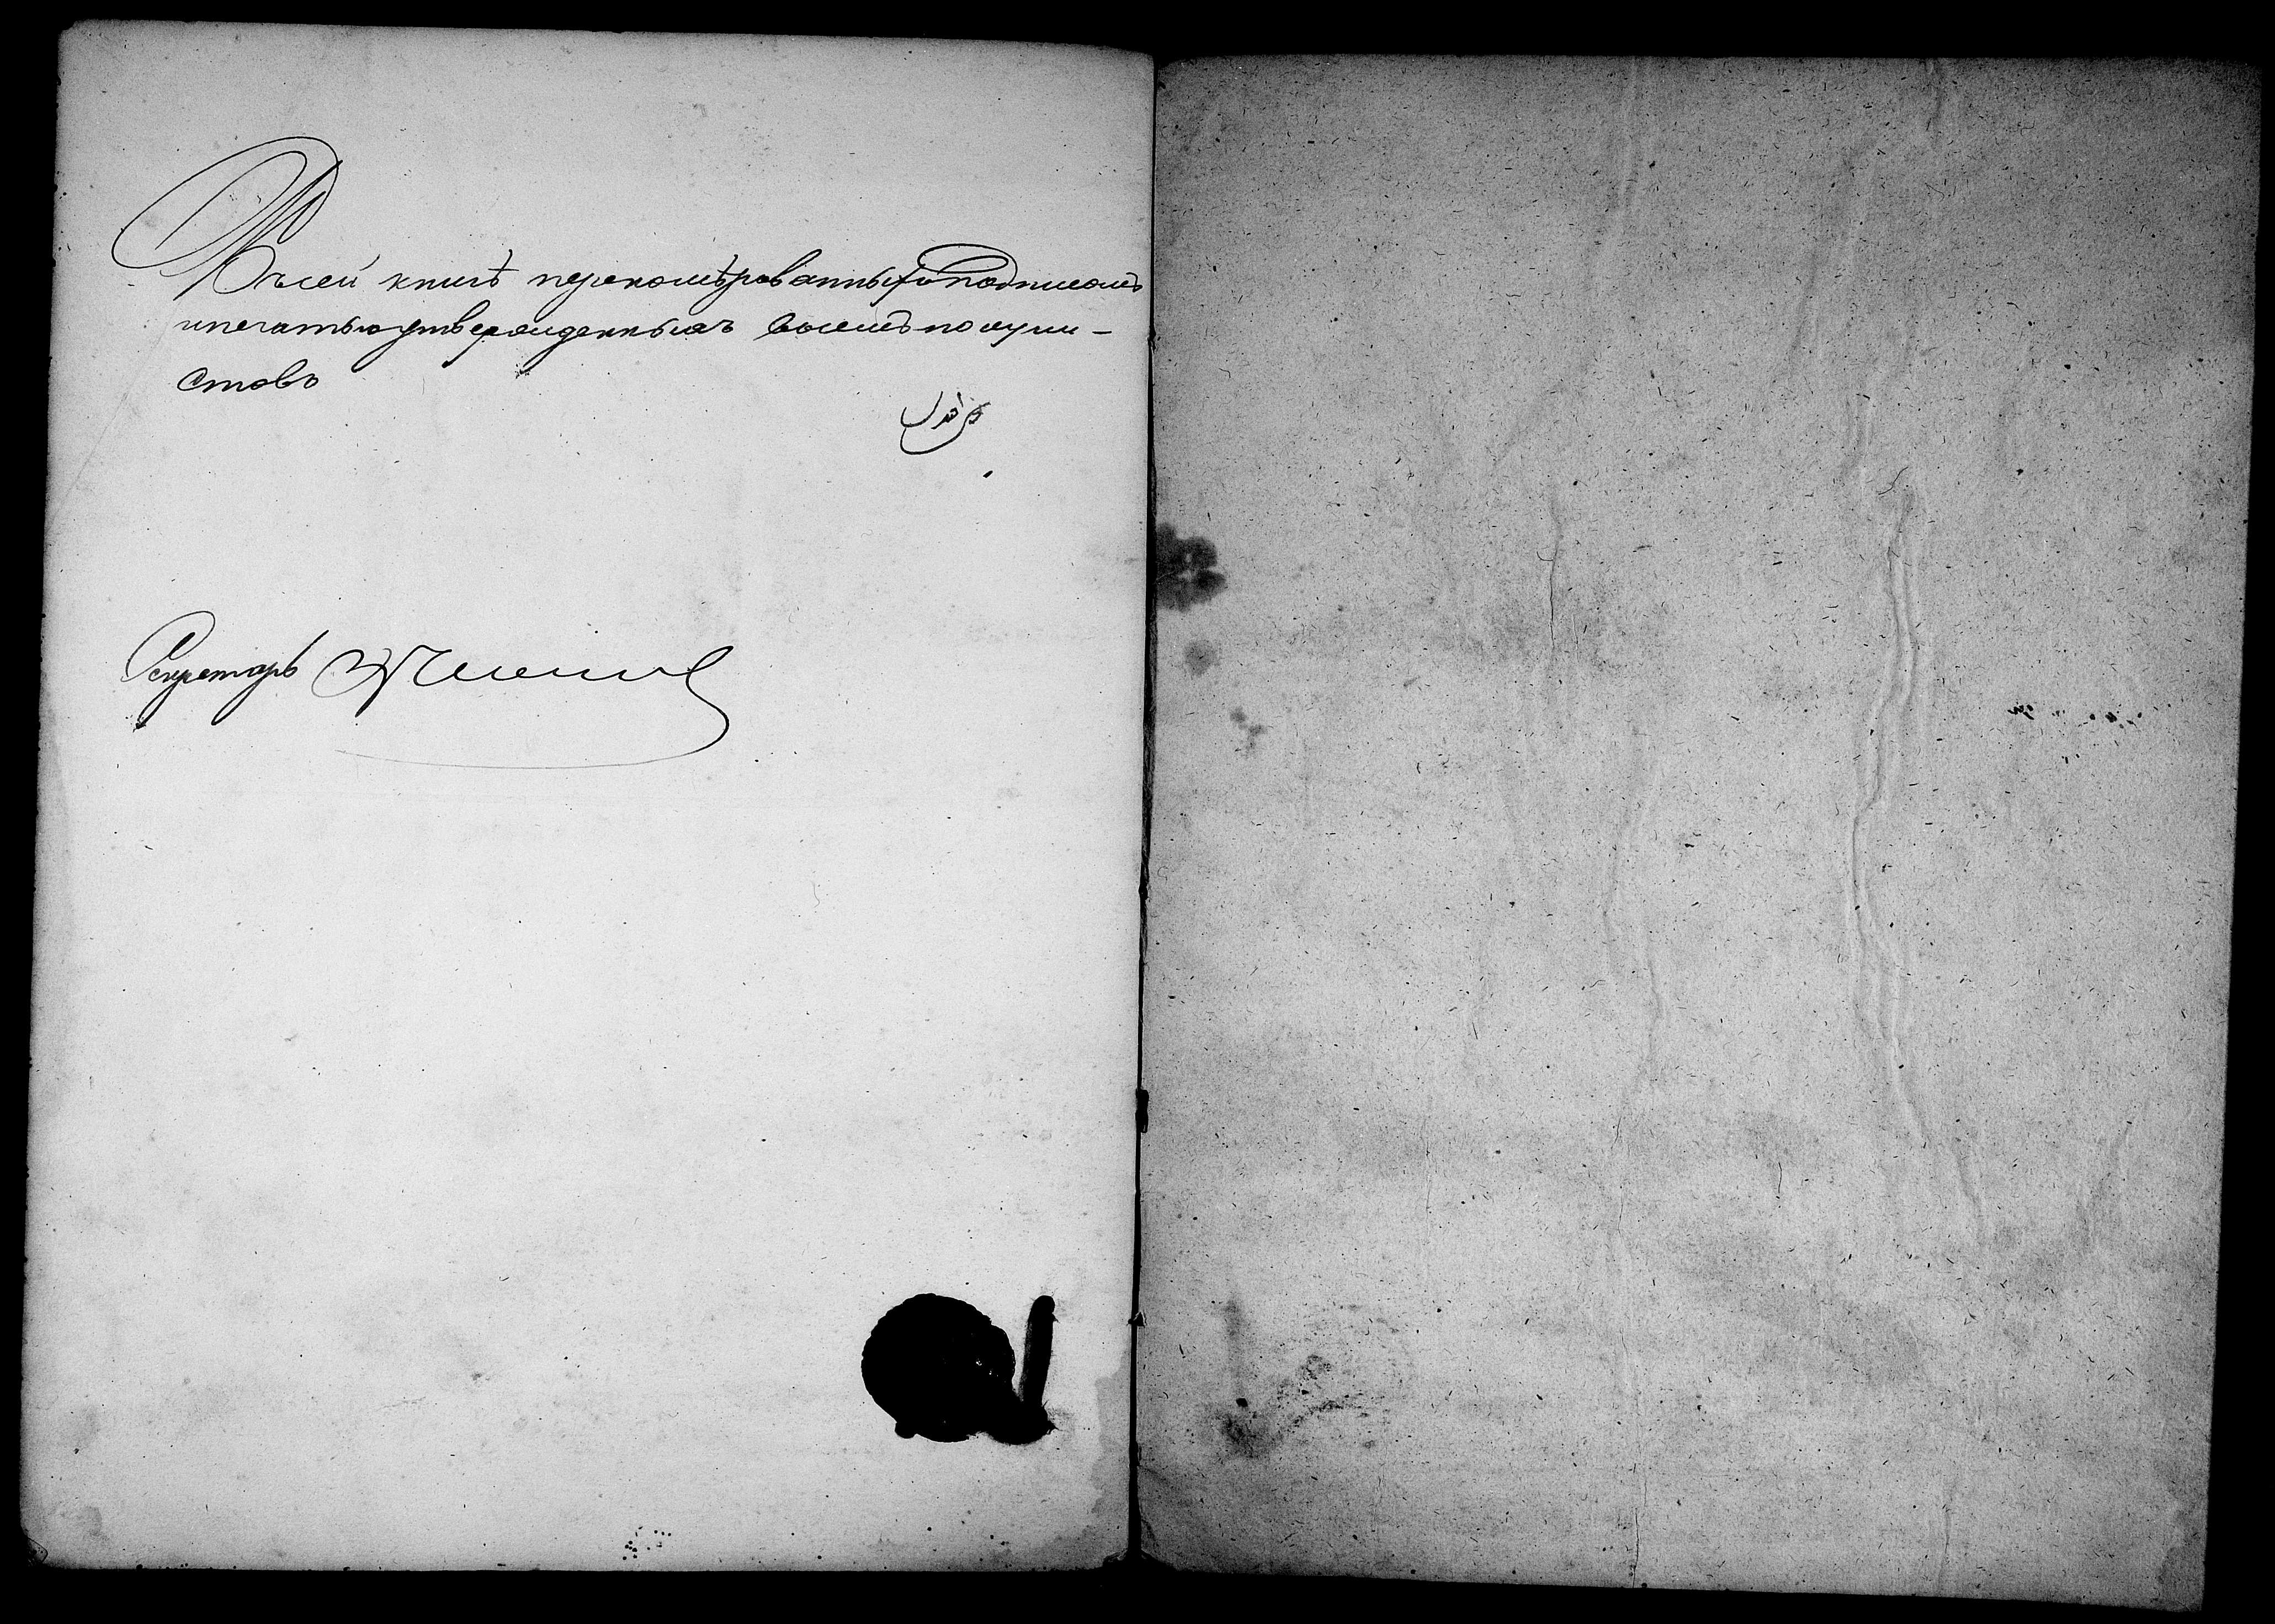 Въ сей книгѣ переномѣрованныхъ подписомъ
и печатью утвержденныхъ восемь полули-
стовъ
Секретарь